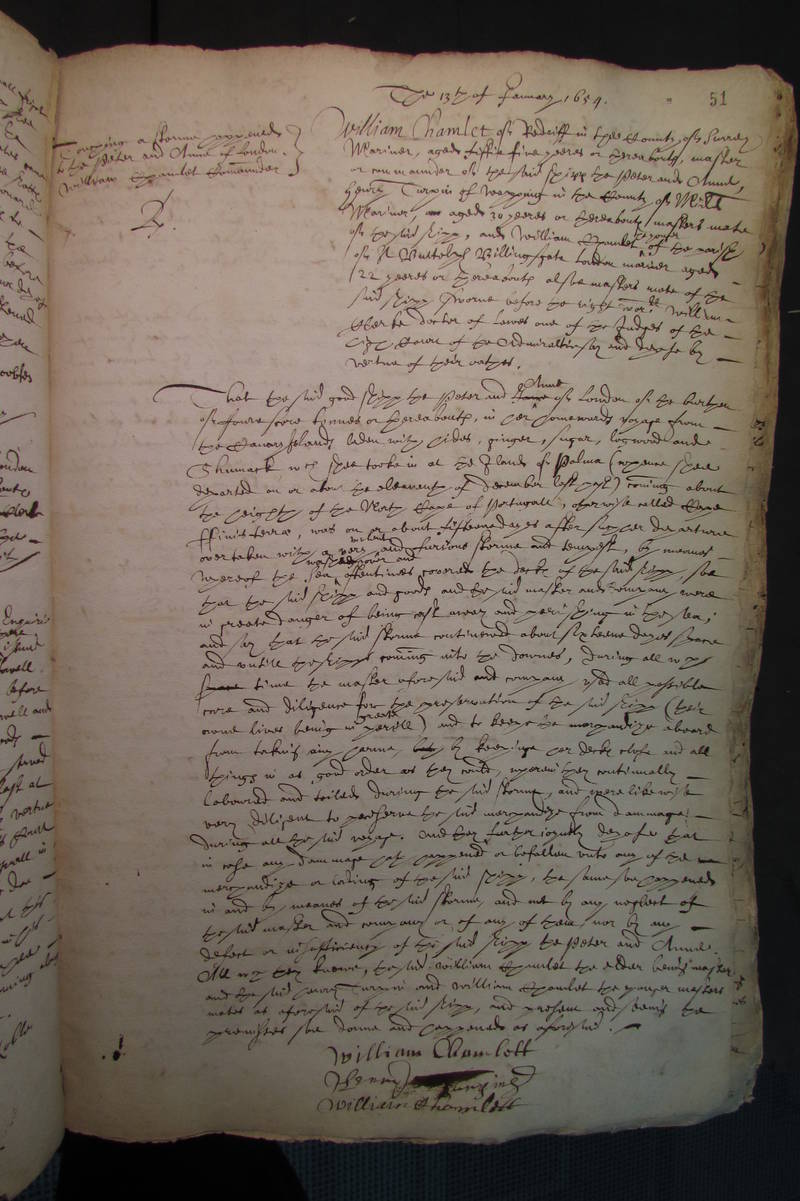 The 13th of January 1654.
51
touching a storme happened
to the Peter and Anne of London.
William Hamlet Comander
William Hamlet of Redriff in the County of Surrey
Mariner, aged fiftie five yeeres or thereabouts, master
or commander of the said shipp the Peter and Anne,
Henry Turpin of Wapping in the County of Midd
Mariner, aged 30 yeeres or thereabouts masters mate
of the said shipp, and William Hamlet the yonger of the parish
of St Buttolph Billingsgate London mariner aged
22 yeeres or thereabouts alsoe masters mate of the
said shipp sworne before the right worll William
Clerke doctor of Lawes one of the Judges of the
high Court of the Admiraltie say and depose by
vertue of their oathes.
That the said good shipp the Peter and Anne of London of the burthen
of foure score tonnes or thereabouts, in her homewards voyage from
the Canarie Islands laden with hides, ginger, sugar, logwood and
Shumack wch shee tooke in at the Island of Palma (whence shee
departed on or about the eleaventh of December last past) coming about
the heighth of the North Cape of Portugall, otherwise called Cape
Finisterra, was on or about fifteene dayes after such her departure
overtaken with a very violent and furious storme and tempest, by meanes
whereof the sea washed over and oftentimes covered the deck of the said shipp, soe
that the said shipp and goods and the said master and company were
in greate danger of being cast away and perishing in the sea;
and say that the said storme continued about sixteene dayes space
and untill the shipps coming into the Downes, during all wch
time the master aforesaid and company used all possible
care and diligence for the preservation of the said shipp (their
owne lives being in greate perill) and to keepe the merchandize aboard
from taking any harme, by keeping her deck close and all
things in as good order as they could, wherein they continually
laboured and toiled during the said storme, and were likewise
very diligent to preserve the said merchandize from dammage
during all the said voyage. And they further joyntly depose that
in case any dammage hath happened or befallen unto any of the
merchandize or lading of the said shipp, the same soe happened
in and by meanes of the said storme, and not by any neglect of
the said master and company or of any of them nor by any
defect or insufficiency of the said shipp the Peter and Anne.
All wch they knowe, the said William Hamlet the elder being master
and the said Henry Turpin and William Hamlet the yonger masters
mates as aforesaid of the said shipp, and present and seeing the
premisses soe donne and happened as aforesaid.
William Hamlett
Henry Turpin
William Hamlett